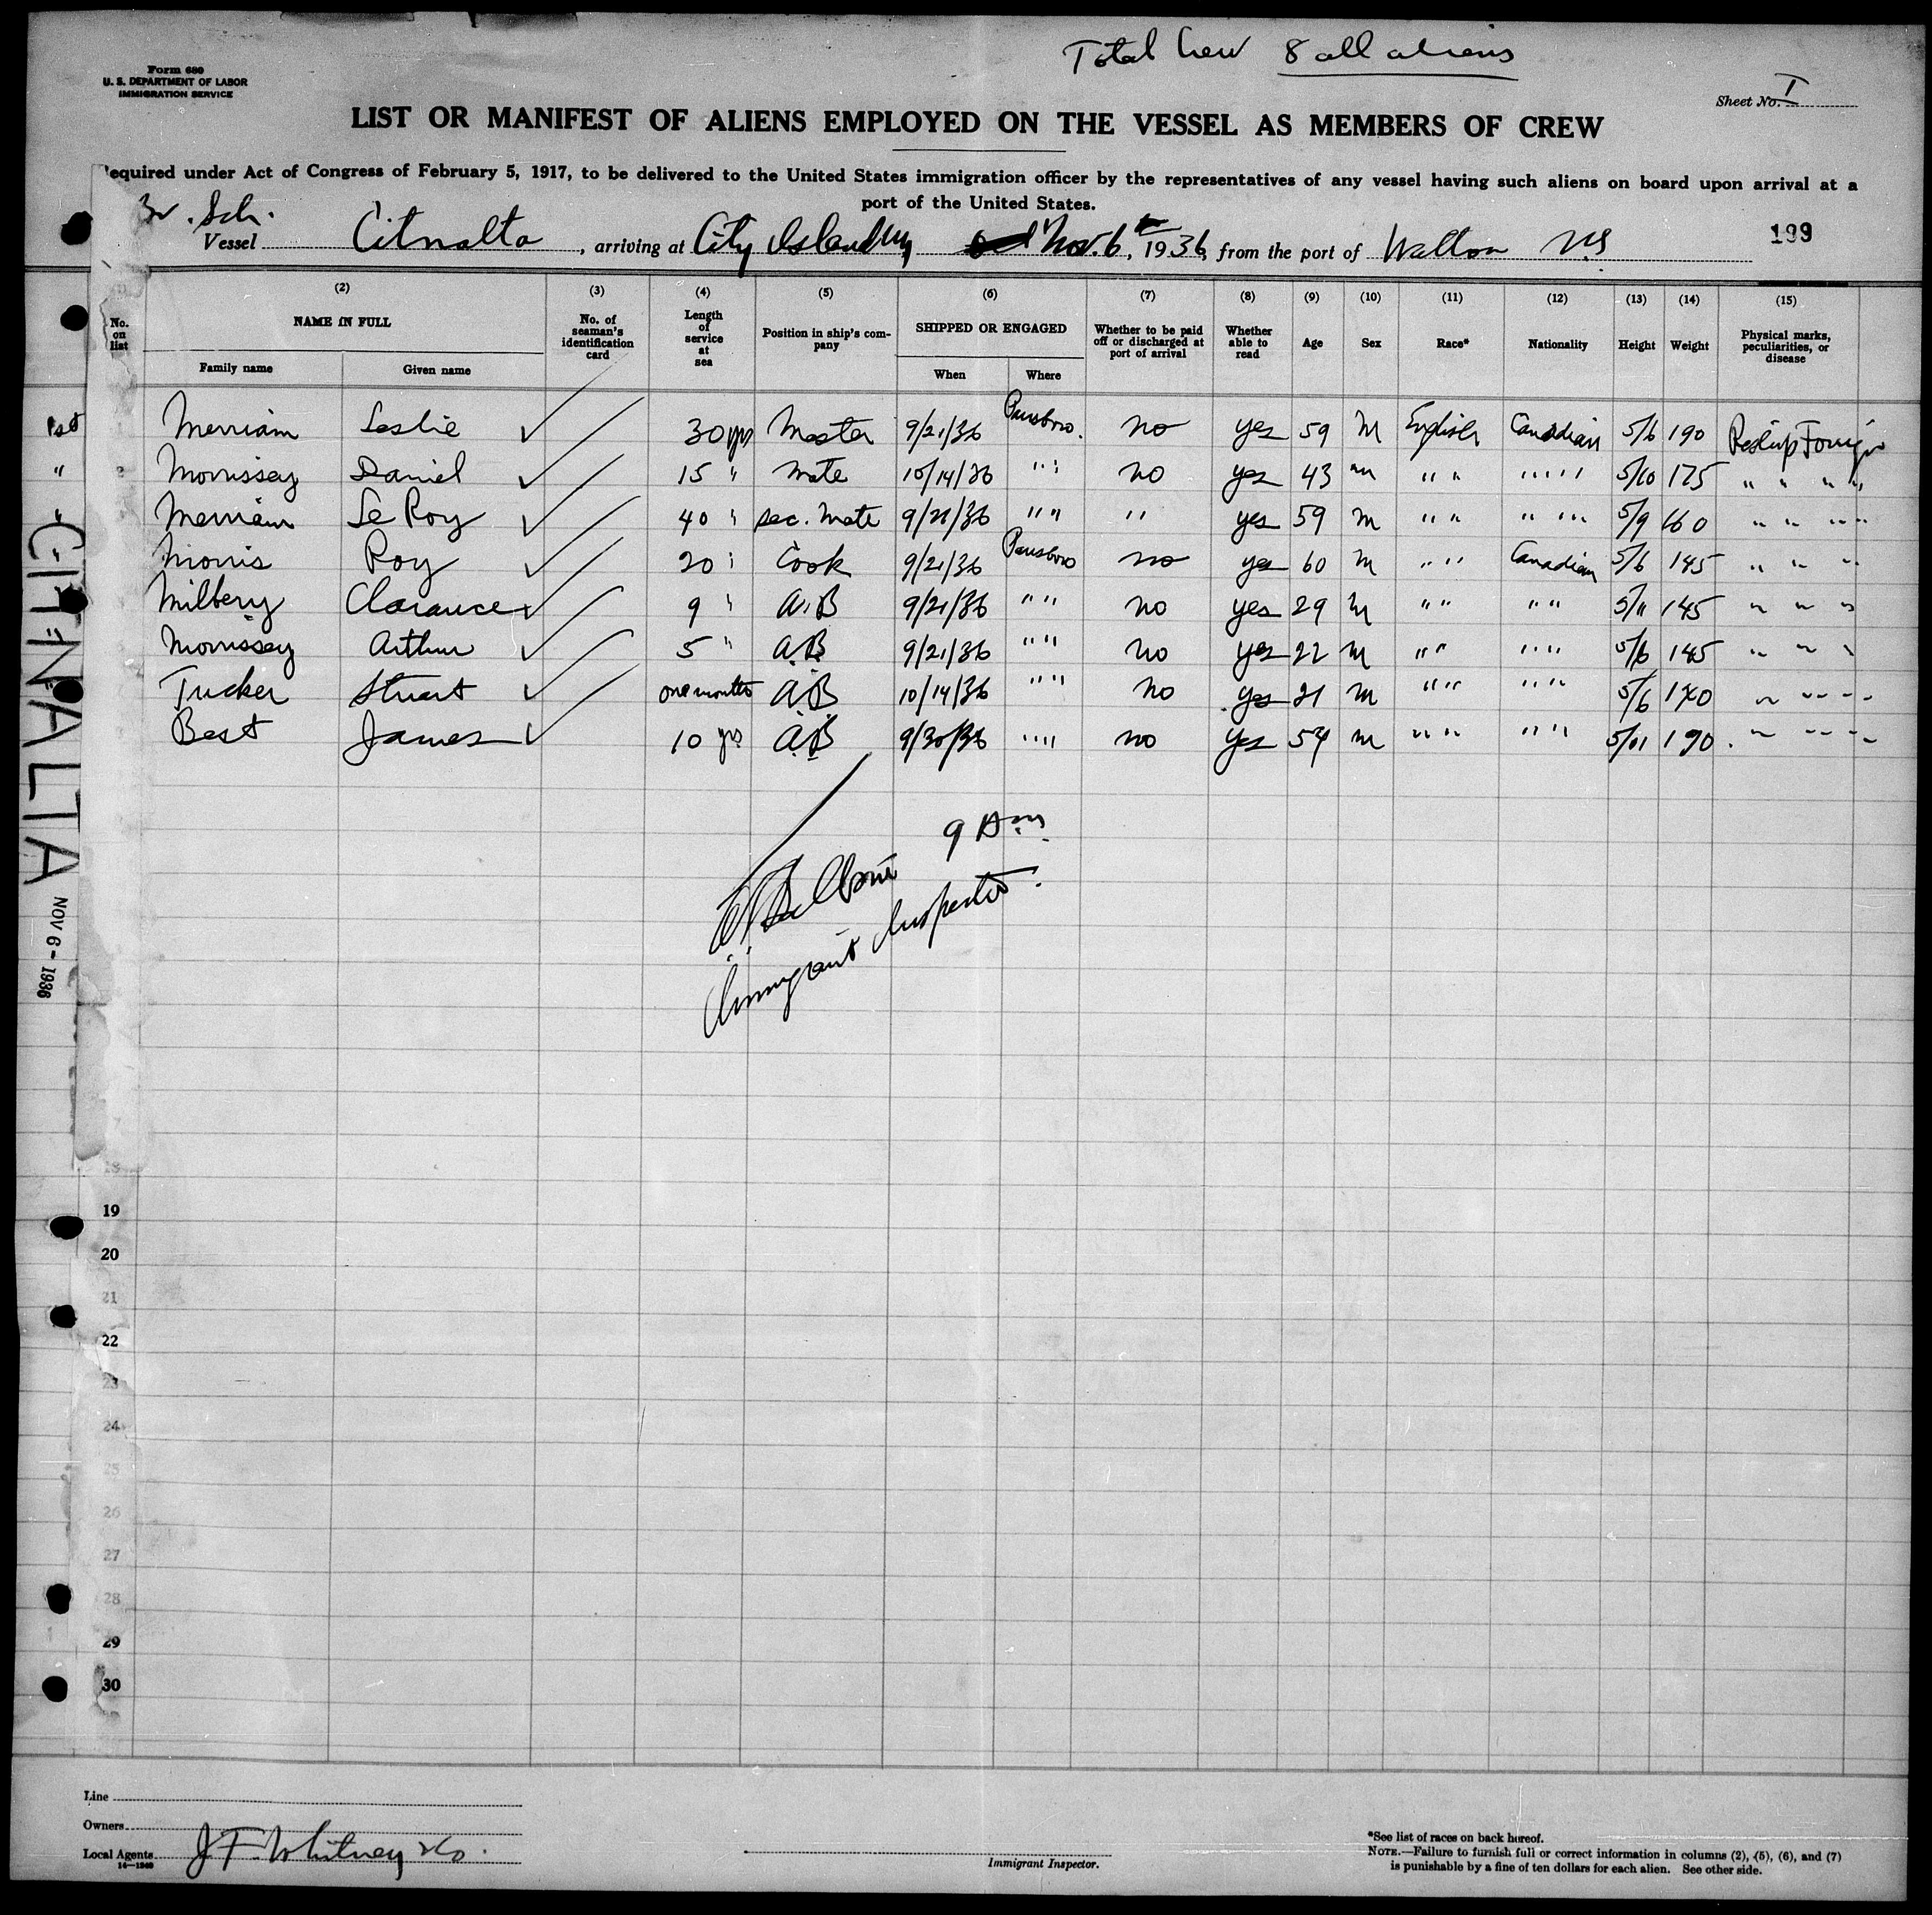 Total Crew 8 all aliens
Form 680
U. S. DEPARTMENT OF LABOR
IMMIGRATION SERVICE
Sheet No. I
LIST OR MANIFEST OF ALIENS EMPLOYED ON THE VESSEL AS MEMBERS OF CREW
equired under Act of Congress of February 5, 1917, to be delivered to the United States immigration officer by the representatives of any vessel having such aliens on board upon arrival at a
port of the United States.
Br. Sch.
Vessel Citnalta, arriving at City Island Ny Nov. 6, 1936, from the port of Walton NS
199
(2) (3) (4) (5) (6) (7) (8) (9) (10) (11) (12) (13) (14) (15)
No. on list NAME IN FULL No. of seaman's identification card Length of service at sea Position in ship's company SHIPPED OR ENGAGED Whether to be paid off or discharged at port of arrival Whether able to read Age Sex Race* Nationality Height Weight Physical marks, peculiarities, or disease
Family name Given name When Where
1st Merriam Leslie ✓ 30 yrs Master 9/21/36 Parrsboro. no yes 59 M English Canadian 5/6 190 Foreign
" Morrissey Daniel ✓ 15 " mate 10/14/36 " " no yes 43 m " " " " " 5/10 175 " " " "
" Merriam Le Roy ✓ 40 " sec. mate 9/21/36 " " " yes 59 m " " " " " 5/9 160 " " " "
Morris Roy ✓ 20 " Cook 9/21/36 Parsboro no yes 60 m " " Canadian 5/6 145 " " "
Milbery Clarance ✓ 9 " A.B 9/21/36 " " no yes 29 M " " " " 5/11 145 " " "
Morrissey Arthur ✓ 5 " A.B. 9/21/36 " " no yes 22 M " " " " 5/6 145 " " "
Tucker Stuart ✓ one months A.B. 10/14/36 " " no yes 21 m " " " " 5/6 140 " " " "
Best James ✓ 10 yrs A.B. 9/30/36 " " no yes 54 m " " " " 5/11 190 " " " "
CITNALTA NOV 6 - 1936
9 Am
Immigrant Inspector.
18
19
20
21
22
23
24
25
26
27
28
29
30
Line
Owners
Local Agents J F Whitney & Co.
14—1240
Immigrant Inspector.
*See list of races on back hereof.
NOTE.—Failure to furnish full or correct information in columns (2), (5), (6), and (7)
is punishable by a fine of ten dollars for each alien. See other side.